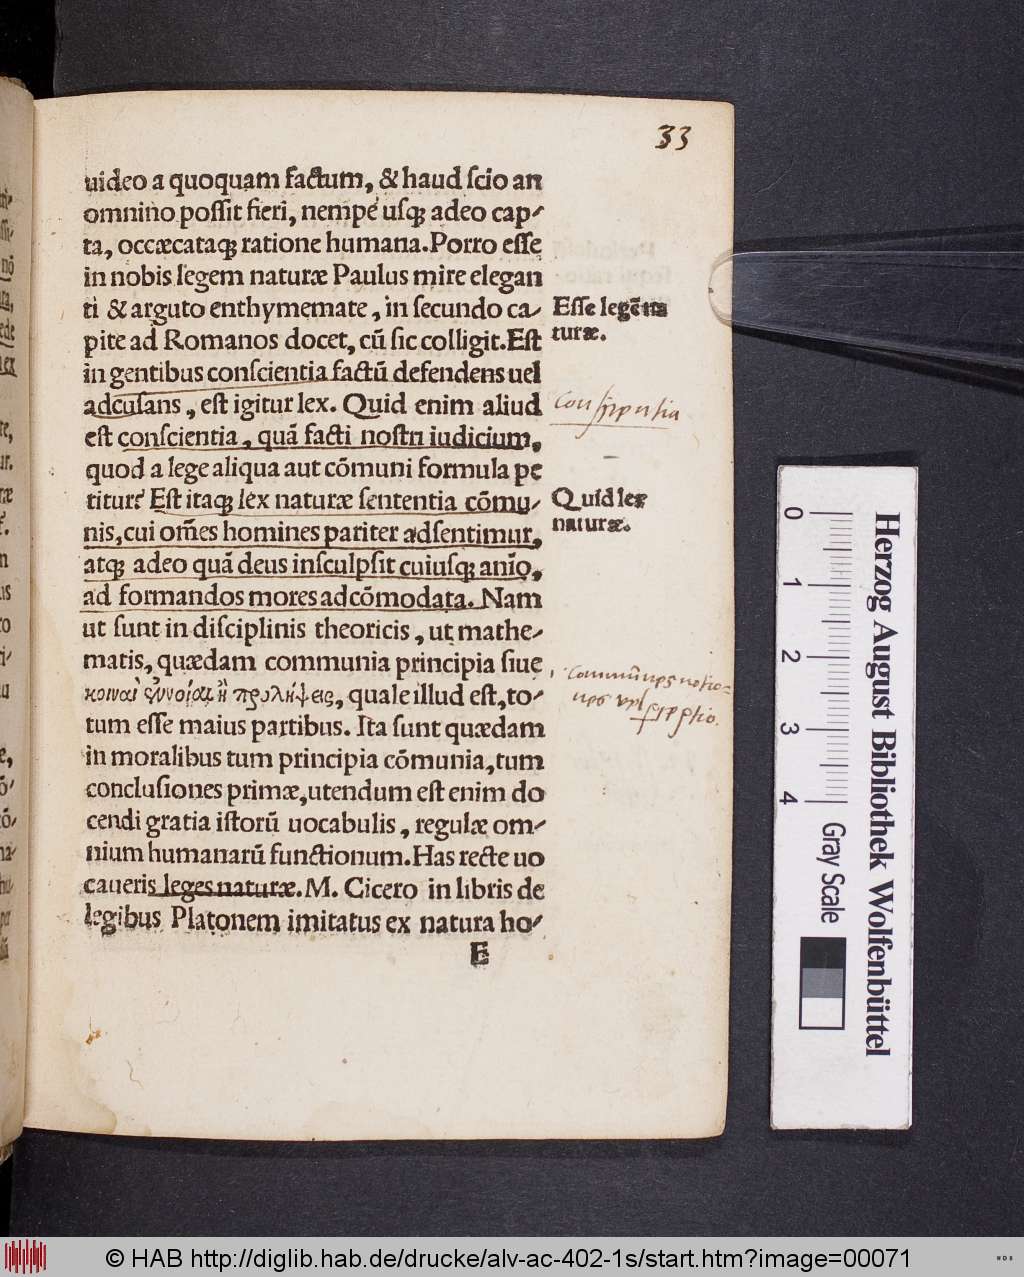 33
uideo a quoquam factum, & haud ſcio an
omnino poſſit fieri, nempe uſqꝫ adeo cap-
ta, occæcataqꝫ ratione humana. Porro eſſe
in nobis legem naturæ Paulus mire elegan
ti & arguto enthymemate, in ſecundo ca-
pite ad Romanos docet, cū ſic colligit. Eſt
in gentibus conſcientia factū defendens uel
adcuſans, eſt igitur lex. Quid enim aliud
eſt conſcientia, quā facti noſtri iudicium,
quod a lege aliqua aut cōmuni formula pe
titur? Eſt itaqꝫ lex naturæ ſententia cōmu-
nis, cui om̄es homines pariter adſentimur,
atqꝫ adeo quā deus inſculpſit cuiuſqꝫ anīo,
ad formandos mores adcōmodata. Nam
ut ſunt in diſciplinis theoricis, ut mathe-
matis, quædam communia principia ſiue
κοιναὶ ἐννοίαι ἢ προλήψεις, quale illud eſt, to-
tum eſſe maius partibus. Ita ſunt quædam
in moralibus tum principia cōmunia, tum
concluſiones primæ, utendum eſt enim do
cendi gratia iſtorū uocabulis, regulæ om-
nium humanarū functionum. Has recte uo
caueris leges naturæ. M. Cicero in libris de
legibus Platonem imitatus ex natura ho-
E
Eſſe legē na
turæ.
Conscientia
Quid lex
naturæ.
Communes notio=
nes vel
0 1 2 3 4
Gray Scale
Herzog August Bibliothek Wolfenbüttel
© HAB http://diglib.hab.de/drucke/alv-ac-402-1s/start.htm?image=00071